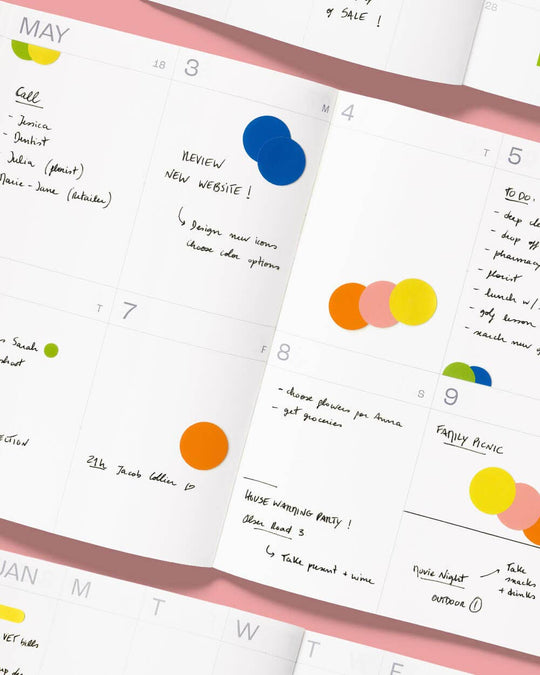 of SALE !
28
MAY
18
Call
- Jessica
- Dentist
Julia (florist)
Marie-Jane (retailer)
3
M
REVIEW
NEW WEBSITE !
Design new icons
choose color options
4
T
5
TO DO:
- deep
- drop off
- pharmacy
- florist
- lunch w/
- golf lesson
- search new
T
Sarah
7
F
21h Jacob Collier
8
S
- choose flowers for Anna
- get groceries
HOUSE WARMING PARTY !
Road 3
Take present + wine
9
FAMILY PICNIC
Movie Night
OUTDOOR
Take
snacks
+ drinks
JAN
M
T
W
T
F
VET bills